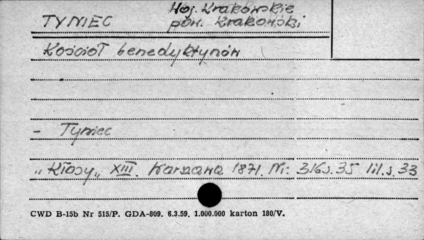 TYNIEC Woj. Krakowskie
pow. Krakowski
Kościół benedyktynów
- Tyniec
"Kłosy" XIII. Warszawa 1871. Nr: 316 s. 35 il. s. 33
CWD B-15b Nr 515/P. GDA-809. 6.3.59. 1.000.000 karton 180/V.